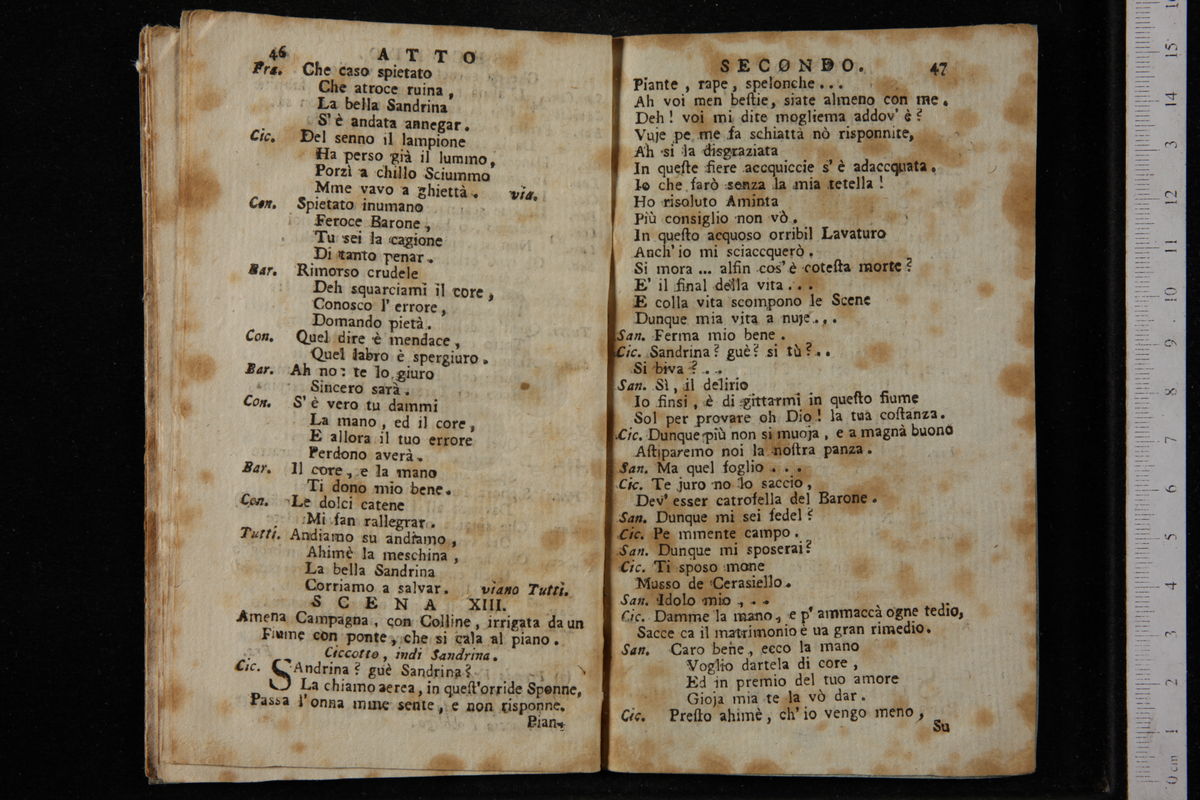 46 ATTO
Fra. Che caso spietato
Che atroce ruina,
La bella Sandrina
S'è andata annegar.
Cic. Del senno il lampione
Ha perso già il lummo,
Porzì a chillo Sciummo
Mme vavo a ghiettà. via.
Con. Spietato inumano
Feroce Barone,
Tu sei la cagione
Di tanto penar.
Bar. Rimorso crudele
Deh squarciami il core,
Conosco l'errore,
Domando pietà.
Con. Quel dire è mendace,
Quel labro è spergiuro.
Bar. Ah no: te lo giuro
Sincero sarà.
Con. S'è vero tu dammi
La mano, ed il core,
E allora il tuo errore
Perdono averà.
Bar. Il core, e la mano
Ti dono mio bene.
Con. Le dolci catene
Mi fan rallegrar.
Tutti. Andiamo su andiamo,
Ahimè la meschina,
La bella Sandrina
Corriamo a salvar. viano Tutti.
SCENA XIII.
Amena Campagna, con Colline, irrigata da un
Fiume con ponte, che si cala al piano.
Ciccotto, indi Sandrina.
Cic. SAndrina? guè Sandrina?
La chiamo aerea, in queſt'orride Sponne,
Passa l'onna mme sente, e non risponne.
Pian-
SECONDO. 47
Piante, rape, spelonche...
Ah voi men beſtie, siate almeno con me.
Deh! voi mi dite mogliema addov'è?
Vuje pe me fa schiattà nò risponnite,
Ah si la disgraziata
In queſte fiere accquiccie s'è adaccquata.
Io che farò senza la mia tetella!
Ho risoluto Aminta
Più consiglio non vò.
In queſto acquoso orribil Lavaturo
Anch'io mi sciaccquerò.
Si mora ... alfin cos'è coteſta morte?
E' il final della vita...
E colla vita scompono le Scene
Dunque mia vita a nuje...
San. Ferma mio bene.
Cic. Sandrina? guè? si tù?..
Si biva?..
San. Sì, il delirio
Io finsi, è di gittarmi in queſto fiume
Sol per provare oh Dio! la tua coſtanza.
Cic. Dunque più non si muoja, e a magnà buono
Aſtiparemo noi la noſtra panza.
San. Ma quel foglio...
Cic. Te juro no lo saccio,
Dev'esser catrofella del Barone.
San. Dunque mi sei fedel?
Cic. Pe mmente campo.
San. Dunque mi sposerai?
Cic. Ti sposo mone
Musso de Cerasiello.
San. Idolo mio...
Cic. Damme la mano, e p'ammaccà ogne tedio,
Sacce ca il matrimonio è ua gran rimedio.
San. Caro bene, ecco la mano
Voglio dartela di core,
Ed in premio del tuo amore
Gioja mia te la vò dar.
Cic. Preſto ahimè, ch'io vengo meno,
Su